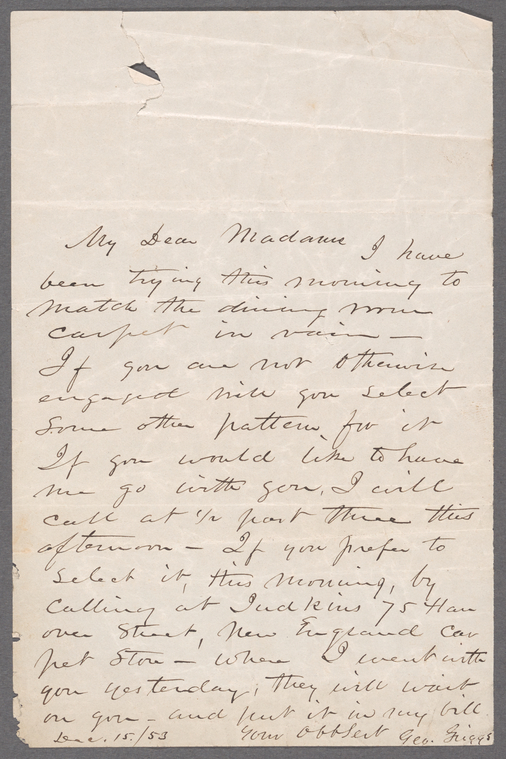 My Dear Madame I have
been trying this morning to
match the dining room
carpet in vain —
If you are not otherwise
engaged will you select
some other pattern for it
If you would like to have
me go with you, I will
call at ½ past three this
afternoon — If you prefer to
select it, this morning, by
calling at Judkins 75 Han
over Street, New England Car
pet Store — where I went with
you yesterday, they will wait
on you — and put it in my bill.
Dec. 15./53 Your Obt Sert Geo. Griggs